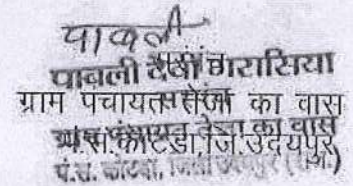 पाबली
सरपंच
पाबली देवी गरासिया
ग्राम पंचायत तेजा का वास
ग्राम पंचायत तेजा का वास
पं.स.कोटडा.जि.उदयपुर
पं.स. कोटडा, जिला उदयपुर (राज.)